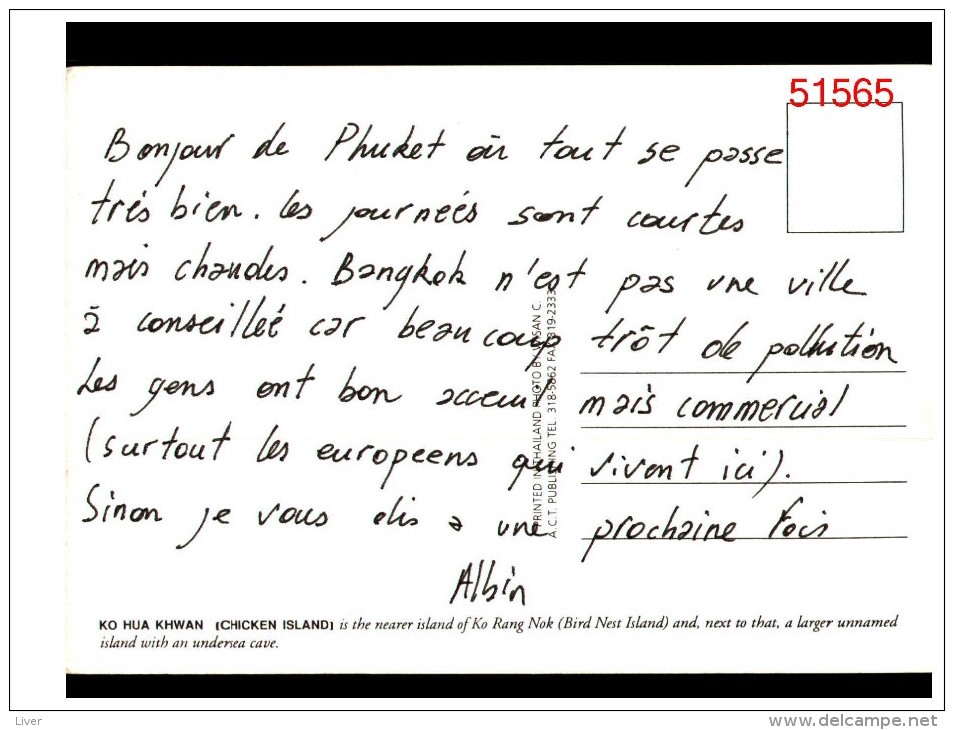 51565
Bonjour de Phuket où tout se passe
trés bien. les journeés sont courtes
mais chaudes. Bangkok n'est pas une ville
à conseilleé car beaucoup trôt de pollution
Les gens ont bon acceuil mais commercial
(surtout les europeens qui vivent ici).
Sinon je vous dis a une prochaine fois
Albin
PRINTED IN THAILAND PHOTO BY SUSAN C.
A.C.T. PUBLISHING TEL. 318-5862 FAX 319-2333
KO HUA KHWAN [CHICKEN ISLAND] is the nearer island of Ko Rang Nok (Bird Nest Island) and, next to that, a larger unnamed
island with an undersea cave.
Liver
www.delcampe.net